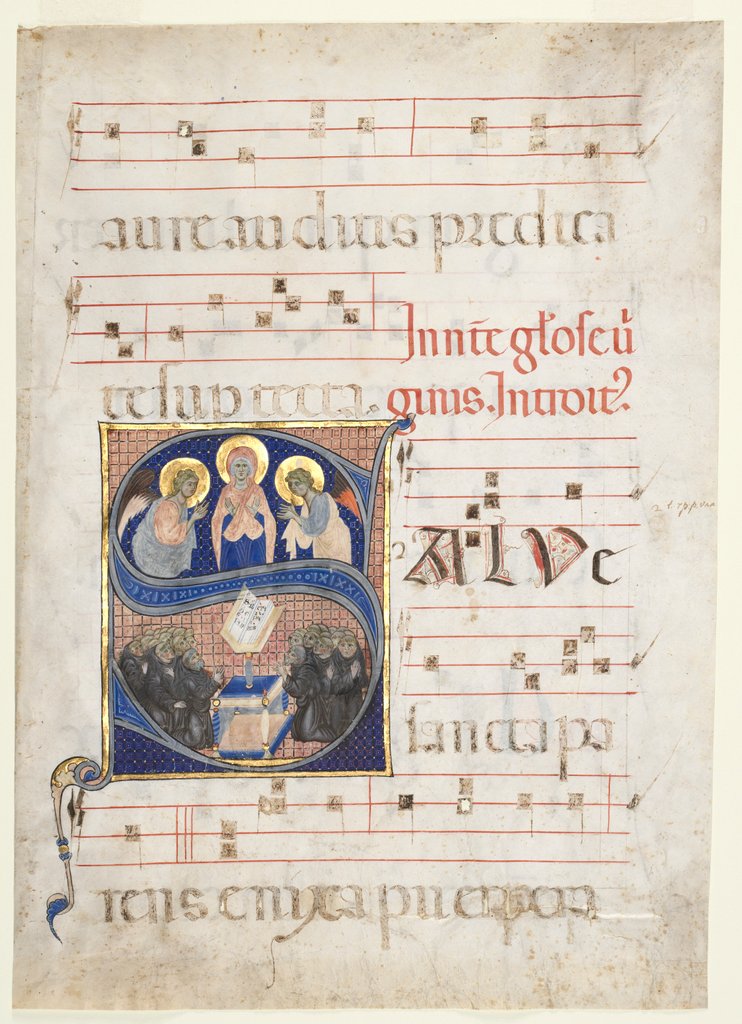 aure auditis predica
te sup tecta.
In nat̄e gl̄ose ū
ginis. Introit᾽
SALVE
sancta pa
rens enixa puerpera